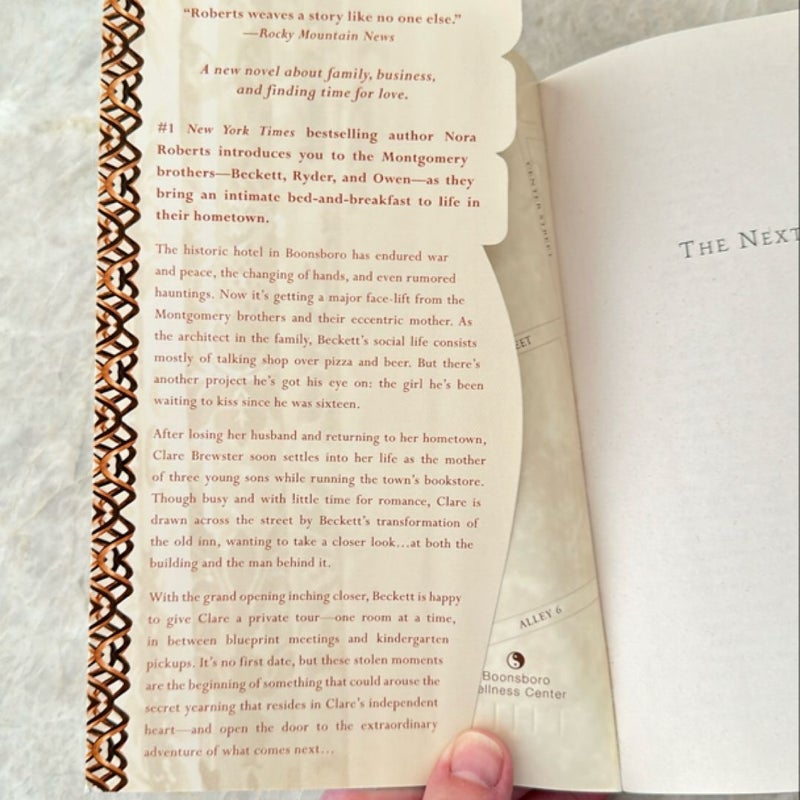 “Roberts weaves a story like no one else.”
—Rocky Mountain News
A new novel about family, business,
and finding time for love.
#1 New York Times bestselling author Nora
Roberts introduces you to the Montgomery
brothers—Beckett, Ryder, and Owen—as they
bring an intimate bed-and-breakfast to life in
their hometown.
The historic hotel in Boonsboro has endured war
and peace, the changing of hands, and even rumored
hauntings. Now it’s getting a major face-lift from the
Montgomery brothers and their eccentric mother. As
the architect in the family, Beckett’s social life consists
mostly of talking shop over pizza and beer. But there’s
another project he’s got his eye on: the girl he’s been
waiting to kiss since he was sixteen.
After losing her husband and returning to her hometown,
Clare Brewster soon settles into her life as the mother
of three young sons while running the town’s bookstore.
Though busy and with little time for romance, Clare is
drawn across the street by Beckett’s transformation of
the old inn, wanting to take a closer look…at both the
building and the man behind it.
With the grand opening inching closer, Beckett is happy
to give Clare a private tour—one room at a time,
in between blueprint meetings and kindergarten
pickups. It’s no first date, but these stolen moments
are the beginning of something that could arouse the
secret yearning that resides in Clare’s independent
heart—and open the door to the extraordinary
adventure of what comes next…
CENTER STREET
EET
ALLEY 6
Boonsboro
ellness Center
THE NEXT